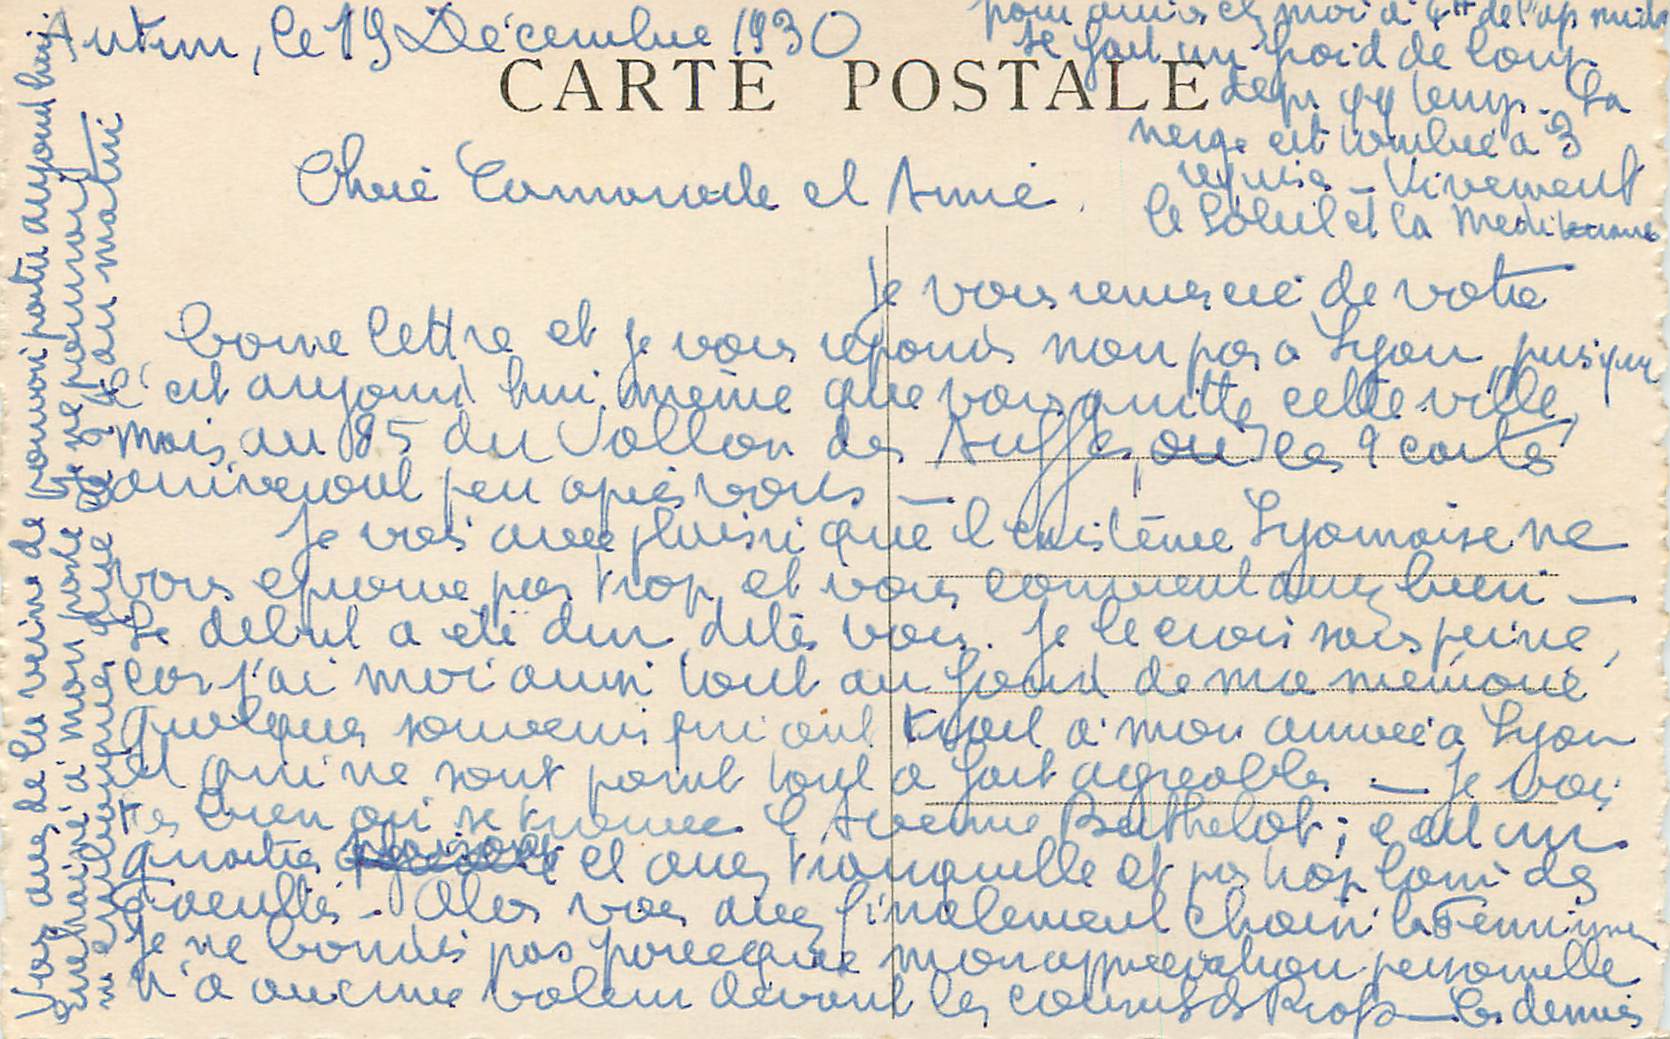 Autun, le 19 Décembre 1930
CARTE POSTALE
Chère Camarade et Amie.
Je vous remercie de votre
bonne lettre et je vous réponds non pas a Lyon, puisque
c'est aujourd'hui même que vous quittez cette ville,
mais au 85 du Vallon des Auffes, où les 9 cartes
arriveront peu après vous —
Je vois avec plaisir que Lyonnaise ne
vous éprouve pas trop, et vous convient assez bien —
Le début a été dur, dites vous. Je le crois sans peine,
car j'ai moi aussi tout au fond de ma mémoire
quelques souvenirs qui ont trait à mon arrivée a Lyon
et qui ne sont point tout a fait agréables — Je vois
très bien où se trouve l'Avenue Berthelot; c'est un
quartier et assez tranquille et pas trop loin des
Facultés. Alors vous avez finalement choisi
Je ne bondis pas parceque mon appréciation personnelle
n'a aucune valeur devant les cours des Profs — Les derniers
pour amis et moi à de l'ap midi
Il fait un froid de loup
depuis qq temps. La
neige est tombée à 3
reprises — Vivement
le Soleil et la Mediterranée
Vous avez de la veine de pouvoir partir aujourd'hui
enchainé à mon poste je ne pourrai
m'embarquer que au matin